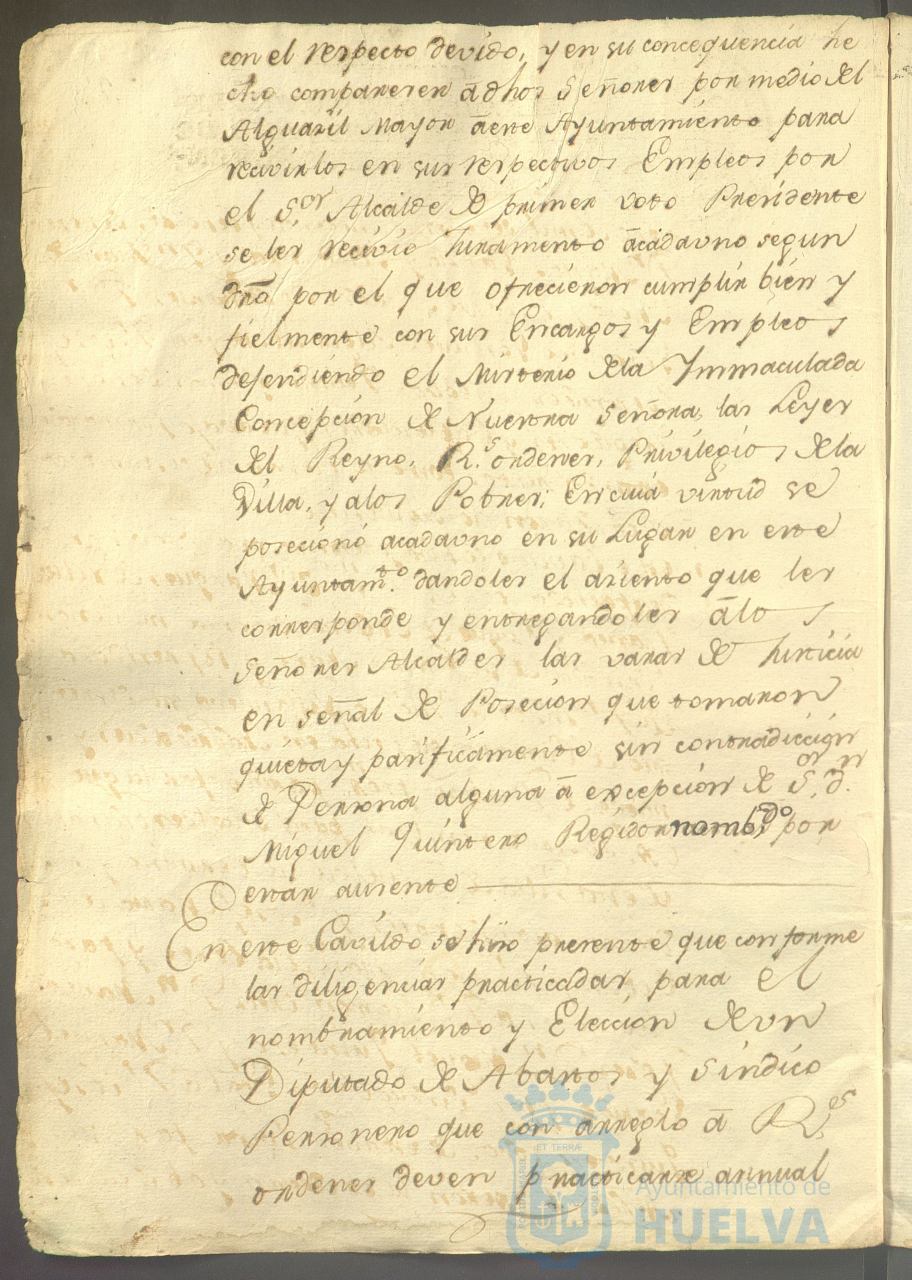 con el respecto devido, y en su concequencia he
cho compareser a dhos Señores por medio del
Alguazil Mayor de este Ayuntamiento para
recivirlos en sus respectivos Empleos por
el S.or Alcalde de primer voto Presidente
se les recivio Juramento a cada uno segun
dro por el que ofrecieron cumplir bien y
fielmente con sus Encargos y Empleos
defendiendo el Misterio de la Immaculada
Concepcion de Nuestra Señora, las Leyes
del Reyno, R.s ordenes, Privilegios de la
Villa, y a los Pobres; En cuia virtud se
posecionó a cada uno en su Lugar en este
Ayuntam.to dandoles el asiento que les
corresponde y entregandoles a los
Señores Alcaldes las varas de Justicia
en señal de Posecion que tomaron
quieta y pasificamente sin contradiccion
de Persona alguna a excepcion de S.or d.n
Miguel Quintero Regidor nombrdo por
estar ausente
En este Cavildo se hizo presente que conforme
las diligencias practicadas para el
nombramiento y Eleccion de un
Diputado de Abastos y Sindico
Personero que con arreglo a R.es
ordenes deven practicarse annual
Ayuntamiento de
HUELVA